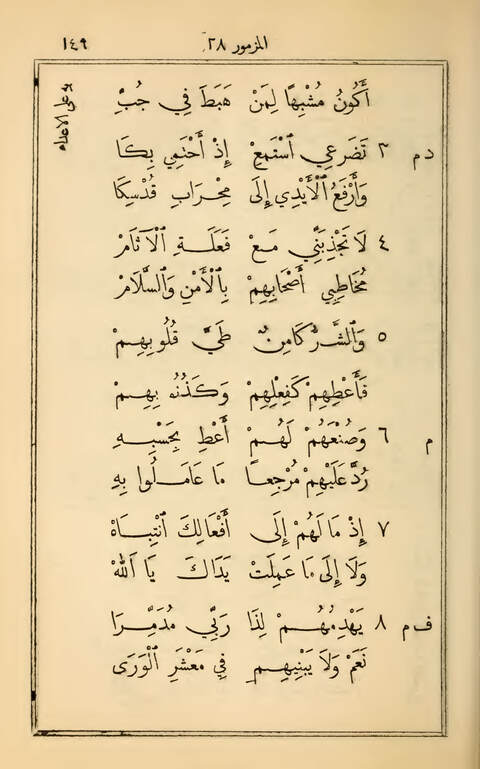 ١٤٩ المزمور ٢٨
يدعو على الاعداء
أَكُونُ مُشْبِهًا لِمَنْ هَبَطَ فِي جُبِّ
د م ٣ تَضَرُّعِي ٱسْتَمِعْ إِذْ أَحْتَمِي بِكَا
وَأَرْفَعُ ٱلْأَيْدِي إِلَى مِحْرَابِ قُدْسِكَا
٤ لَا تَجْذِبَنِّي مَعْ فَعَلَةِ ٱلْآثَامْ
مُخَاطِبِي أَصْحَابِهِمْ بِٱلْأَمْنِ وَٱلسَّلَامْ
٥ وَٱلشَّرُّ كَامِنٌ طَيَّ قُلُوبِهِمْ
فَأَعْطِهِمْ كَفِعْلِهِمْ وَكَذُنُوبِهِمْ
م ٦ وَصُنْعَهُمْ لَهُمْ أَعْطِ بِحَسْبِهِ
رُدَّ عَلَيْهِمْ مُرْجِعًا مَا عَامَلُوا بِهِ
٧ إِذْ مَا لَهُمْ إِلَى أَفْعَالِكَ ٱنْتِبَاهْ
وَلَا إِلَى مَا عَمِلَتْ يَدَاكَ يَا أَللهْ
ف م ٨ يَهْدِمُهُمْ لِذَا رَبِّي مُدَمِّرَا
نَعَمْ وَلَا يَبْنِيهِمِ فِي مَعْشَرِ ٱلْوَرَى